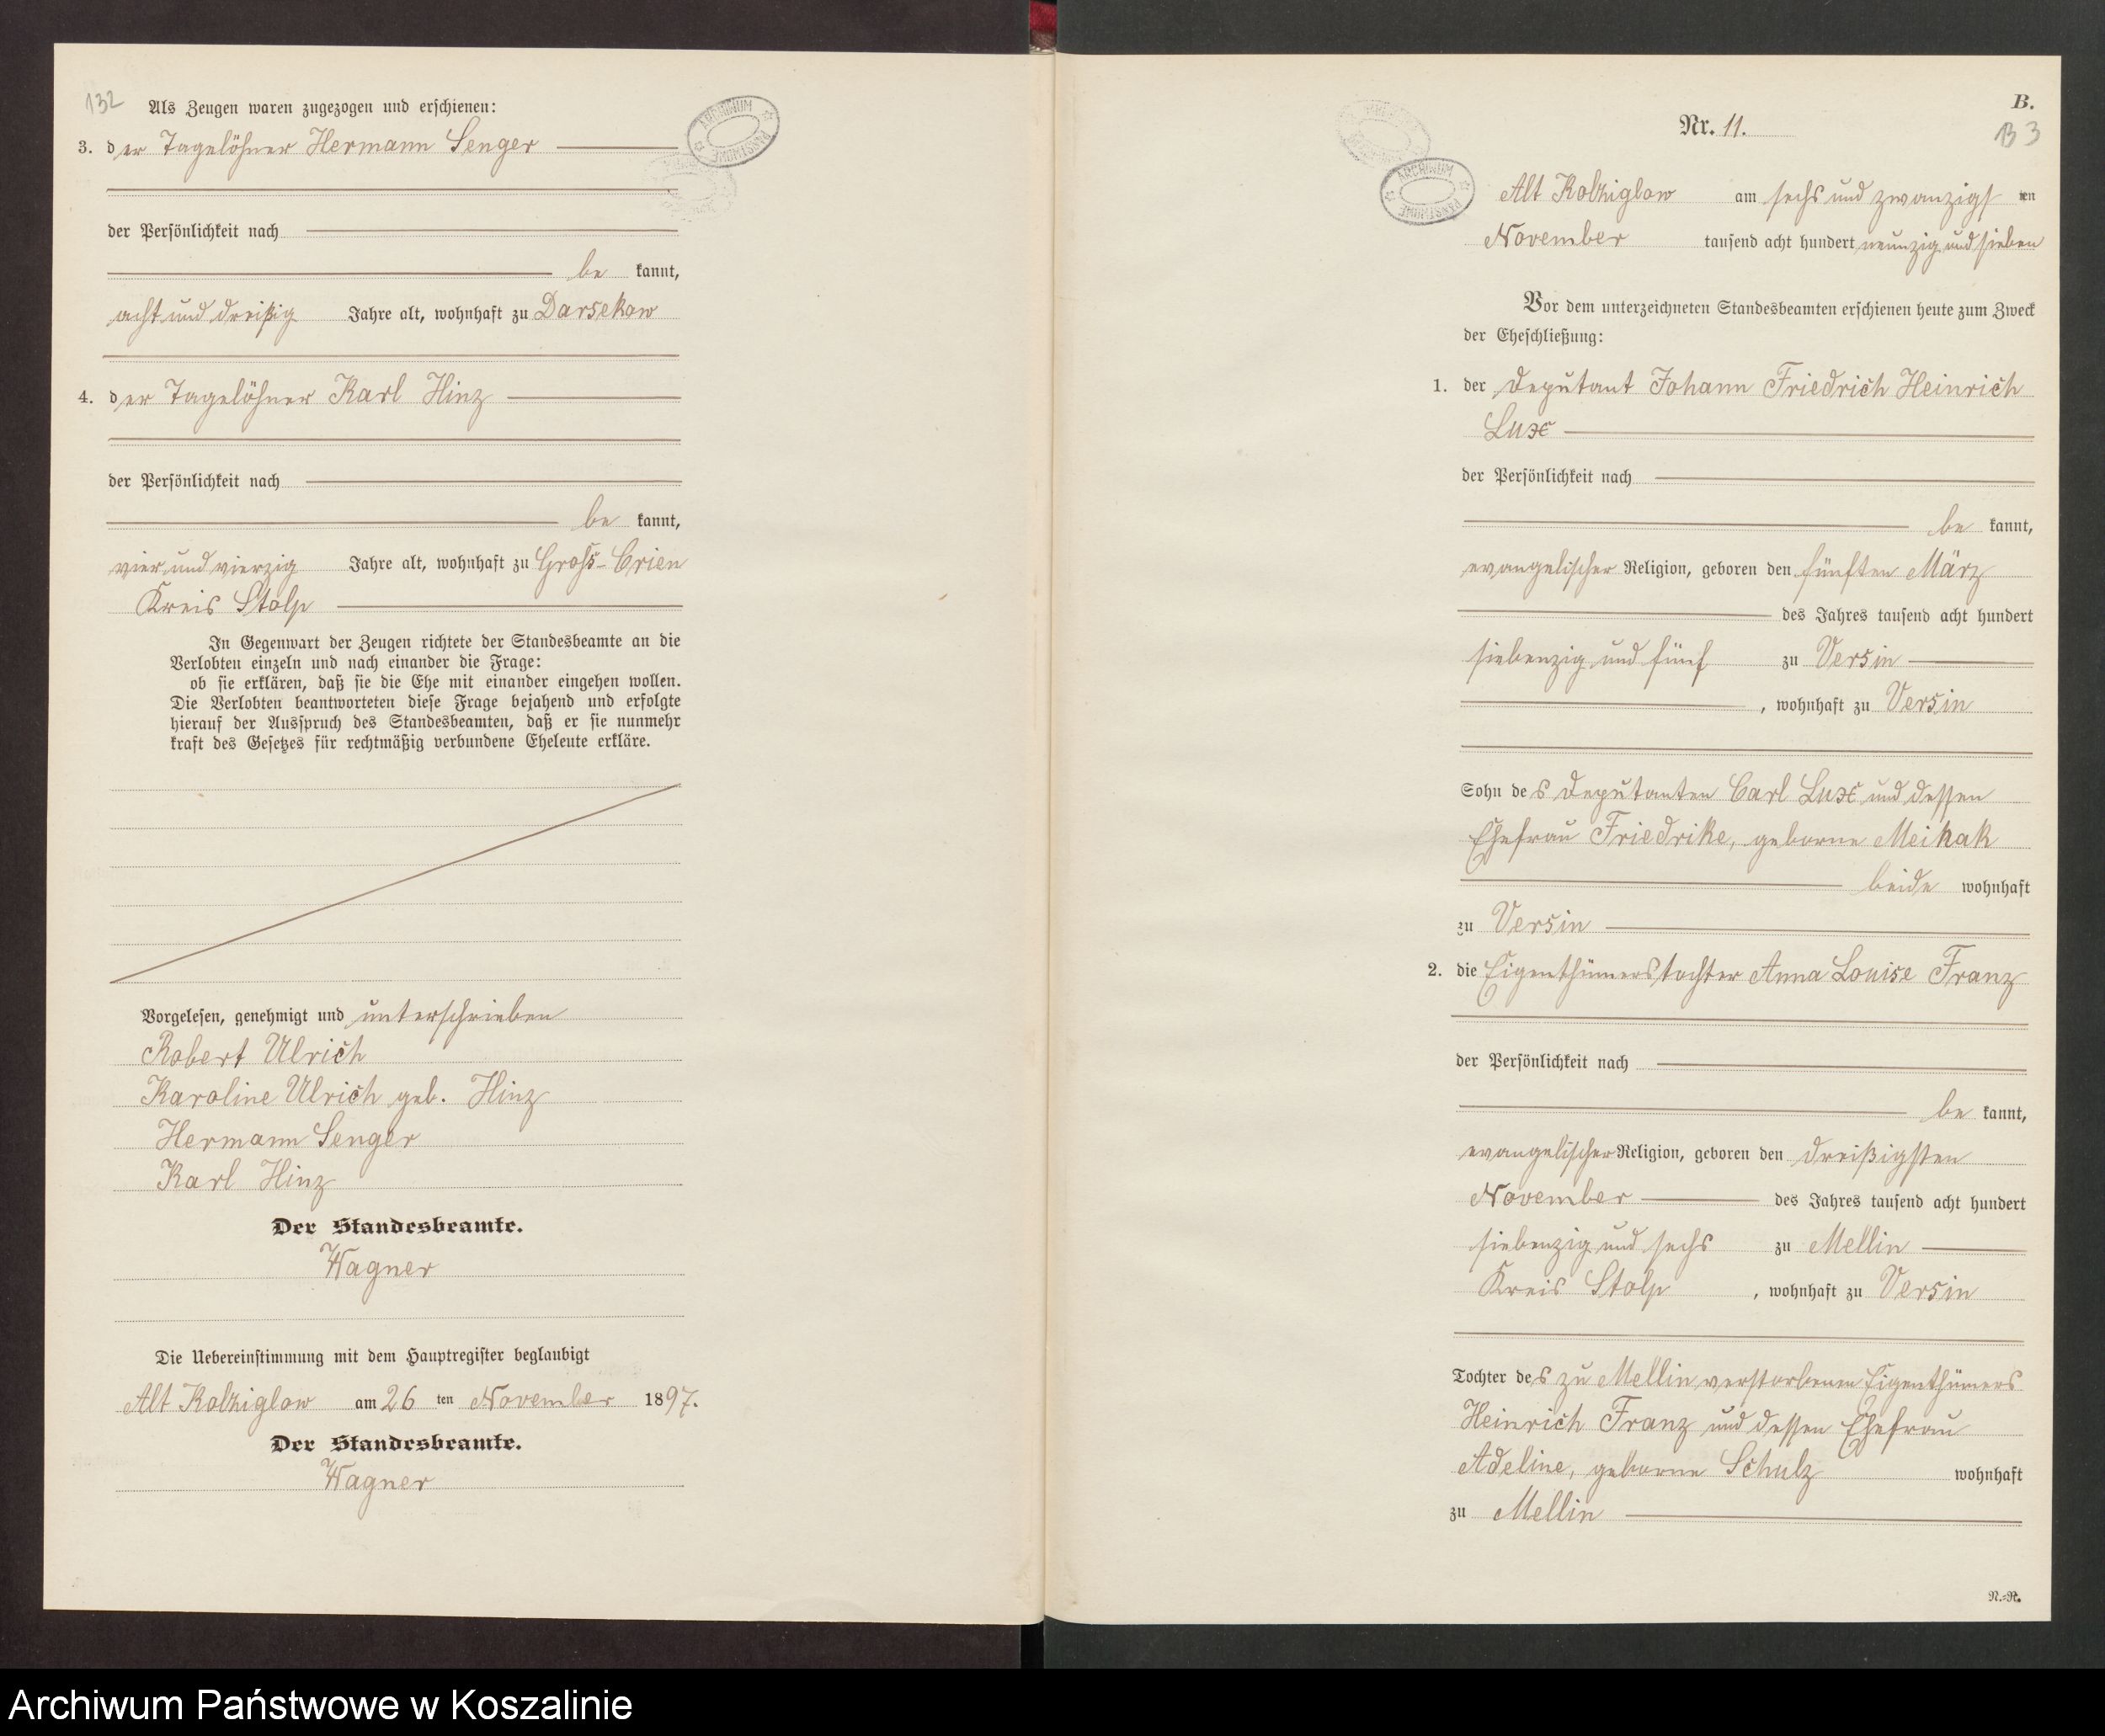 132
Als Zeugen waren zugezogen und erschienen:
3. der Tagelöhner Hermann Senger
der Persönlichkeit nach
be kannt,
acht und dreißig Jahre alt, wohnhaft zu Darsekow
4. der Tagelöhner Karl Hinz
der Persönlichkeit nach
be kannt,
vier und vierzig Jahre alt, wohnhaft zu Groß-Crien
Kreis Stolp
In Gegenwart der Zeugen richtete der Standesbeamte an die
Verlobten einzeln und nach einander die Frage:
ob sie erklären, daß sie die Ehe mit einander eingehen wollen.
Die Verlobten beantworteten diese Frage bejahend und erfolgte
hierauf der Ausspruch des Standesbeamten, daß er sie nunmehr
kraft des Gesetzes für rechtmäßig verbundene Eheleute erkläre.
Vorgelesen, genehmigt und unterschrieben
Robert Ulrich
Karoline Ulrich geb. Hinz
Hermann Senger
Karl Hinz
Der Standesbeamte.
Wagner
Die Uebereinstimmung mit dem Hauptregister beglaubigt
Alt Kolziglow am 26 ten November 1897.
Der Standesbeamte.
Wagner
B.
Nr. 11.
133
Alt Kolziglow am sechs und zwanzigsten
November tausend acht hundert neunzig und sieben
Vor dem unterzeichneten Standesbeamten erschienen heute zum Zweck
der Eheschließung:
1. der Deputant Johann Friedrich Heinrich
Lux
der Persönlichkeit nach
be kannt,
evangelischer Religion, geboren den fünften März
des Jahres tausend acht hundert
siebenzig und fünf zu Versin
, wohnhaft zu Versin
Sohn des Deputanten Carl Lux und dessen
Ehefrau Friedrike, geborne Meikak
beide wohnhaft
zu Versin
2. die Eigenthümerstochter Anna Louise Franz
der Persönlichkeit nach
be kannt,
evangelischer Religion, geboren den dreißigsten
November des Jahres tausend acht hundert
siebenzig und sechs zu Mellin
Kreis Stolp , wohnhaft zu Versin
Tochter des zu Mellin verstorbenen Eigenthümers
Heinrich Franz und dessen Ehefrau
Adeline, geborne Schulz wohnhaft
zu Mellin
N.=R.
Archiwum Państwowe w Koszalinie